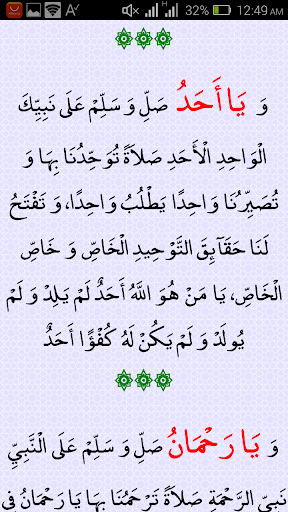 32% 12:49 AM
وَ يَا أَحَدُ صَلِّ وَ سَلِّمْ عَلَى نَبِيِّكَ
الْوَاحِدِ الْأَحَدِ صَلَاةً تُوَحِّدُنَا بِهَا وَ
تُصَيِّرُنَا وَاحِدًا يَطْلُبُ وَاحِدًا، وَ تَفْتَحُ
لَنَا حَقَآيِقَ التَّوْحِيدِ الْخَاصِّ وَ خَاصِّ
الْخَاصِّ، يَا مَنْ هُوَ اللَّهُ أَحَدٌ لَمْ يَلِدْ وَ لَمْ
يُولَدْ وَ لَمْ يَكُنْ لَهُ كُفْوًا أَحَدٌ
وَ يَا رَحْمَانُ صَلِّ وَ سَلِّمْ عَلَى النَّبِيِّ
نَبِيِّ الرَّحْمَةِ صَلَاةً تَرْحَمُنَا بِهَا يَا رَحْمَانُ فِي